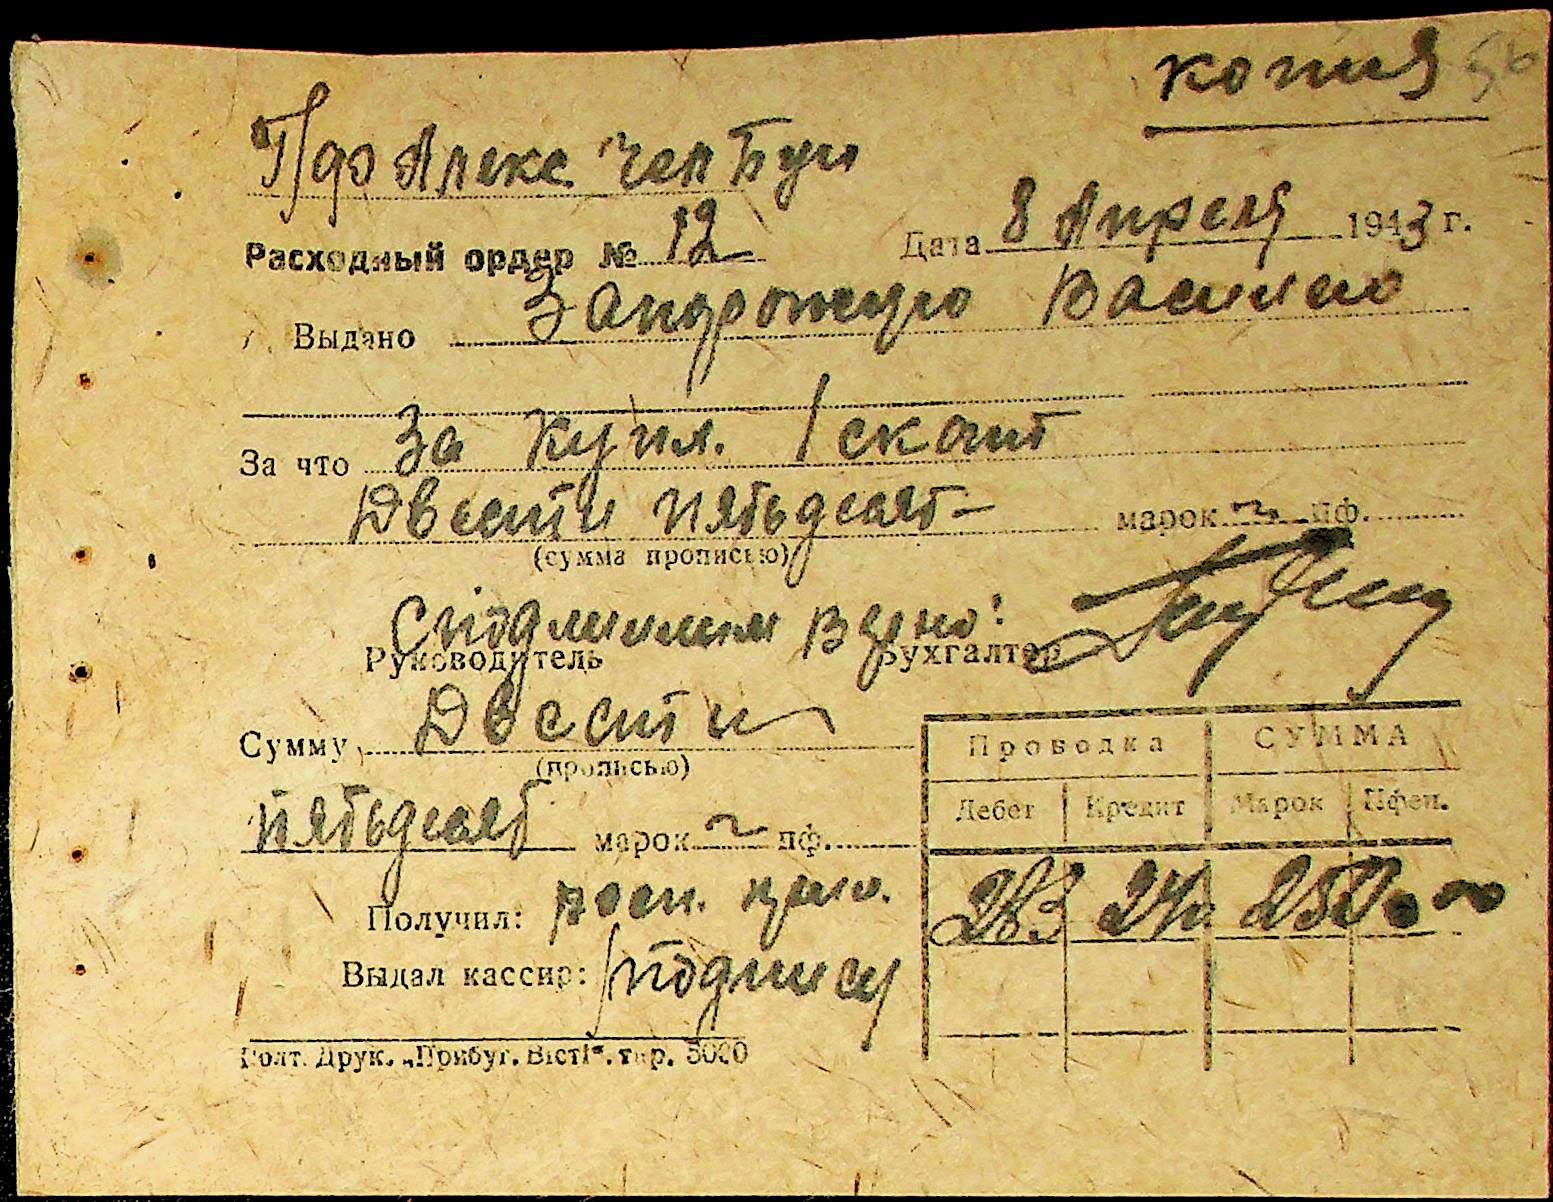 копия 56
Расходный ордер № 12 Дата 8 Апреля 1943 г.
Выдано Запорожцю Василию
За что За купл. скот
Двести пятьдесят — марок ~ пф.
(сумма прописью)
С подлинным верно:
Руководитель Бухгалтер
Сумму Двести
(прописью)
пятьдесят марок ~ пф.
Проводка СУММА
Дебет Кредит Марок Пфен.
283 24 250 00
Получил:
Выдал кассир: /подпись/
Голт. Друк. „Прибуг. Вісті". тир. 5000